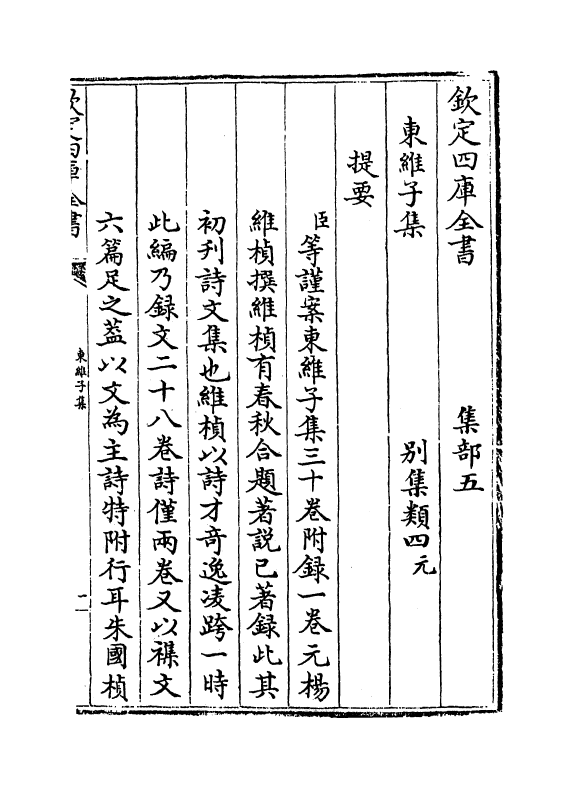 欽定四庫全書 集部五
東維子集 別集類四元
提要
臣等謹案東維子集三十卷附録一卷元楊
維楨撰維楨有春秋合題著説已著録此其
初刋詩文集也維楨以詩才竒逸凌跨一時
此編乃録文二十八卷詩僅兩卷又以襍文
六篇足之葢以文為主詩特附行耳朱國楨
欽定四庫全書
東維子集
二